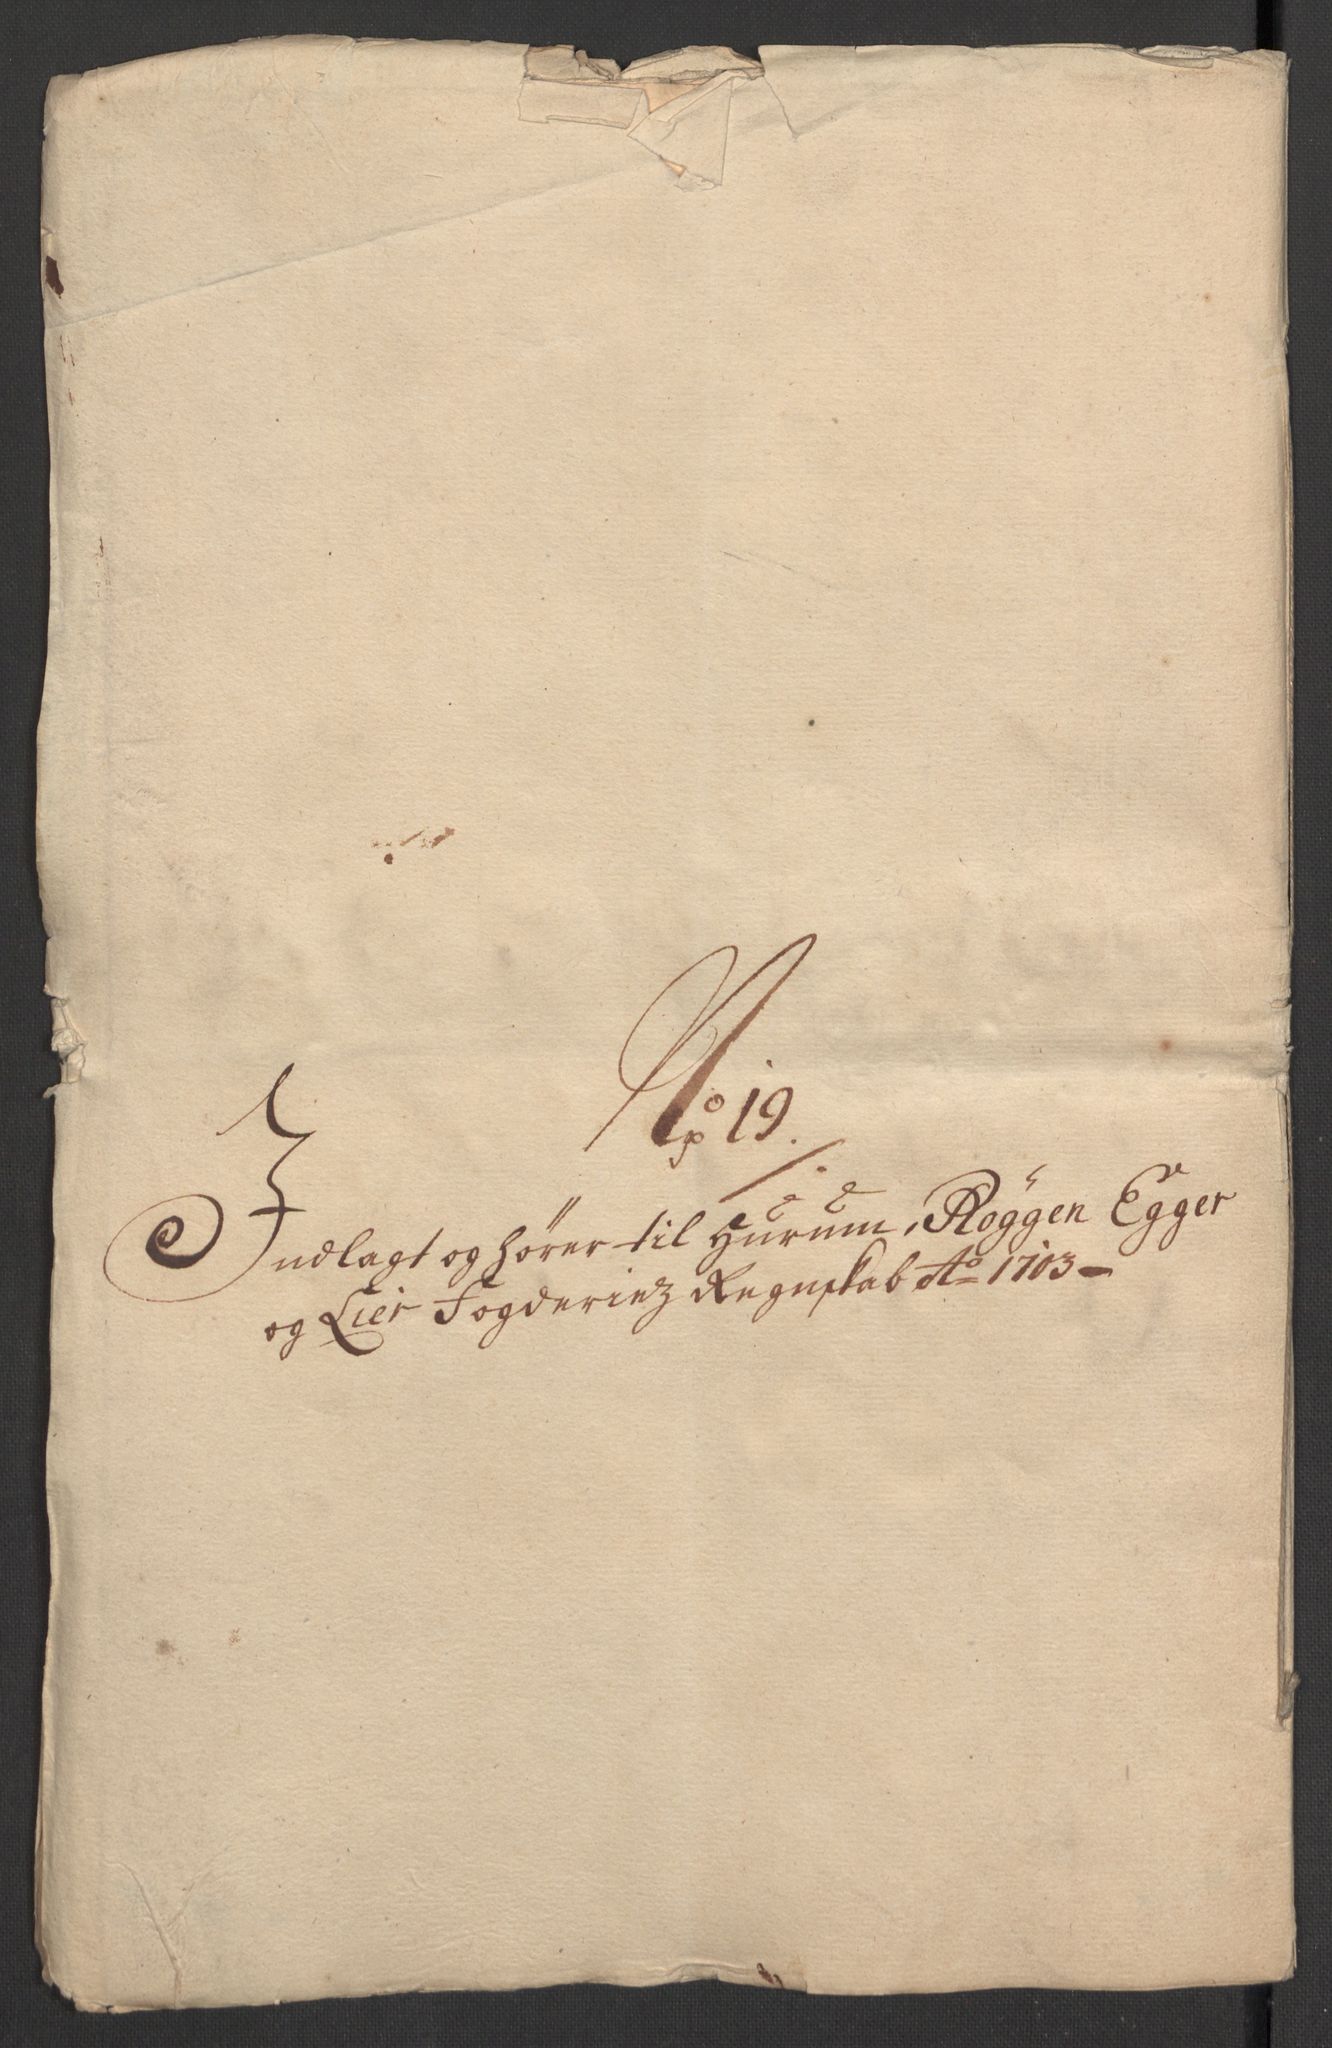 No 19.
Indlagt og hører til Hurum, Røggen Egger
og Lier Fogderietz Regnskab Ao 1703